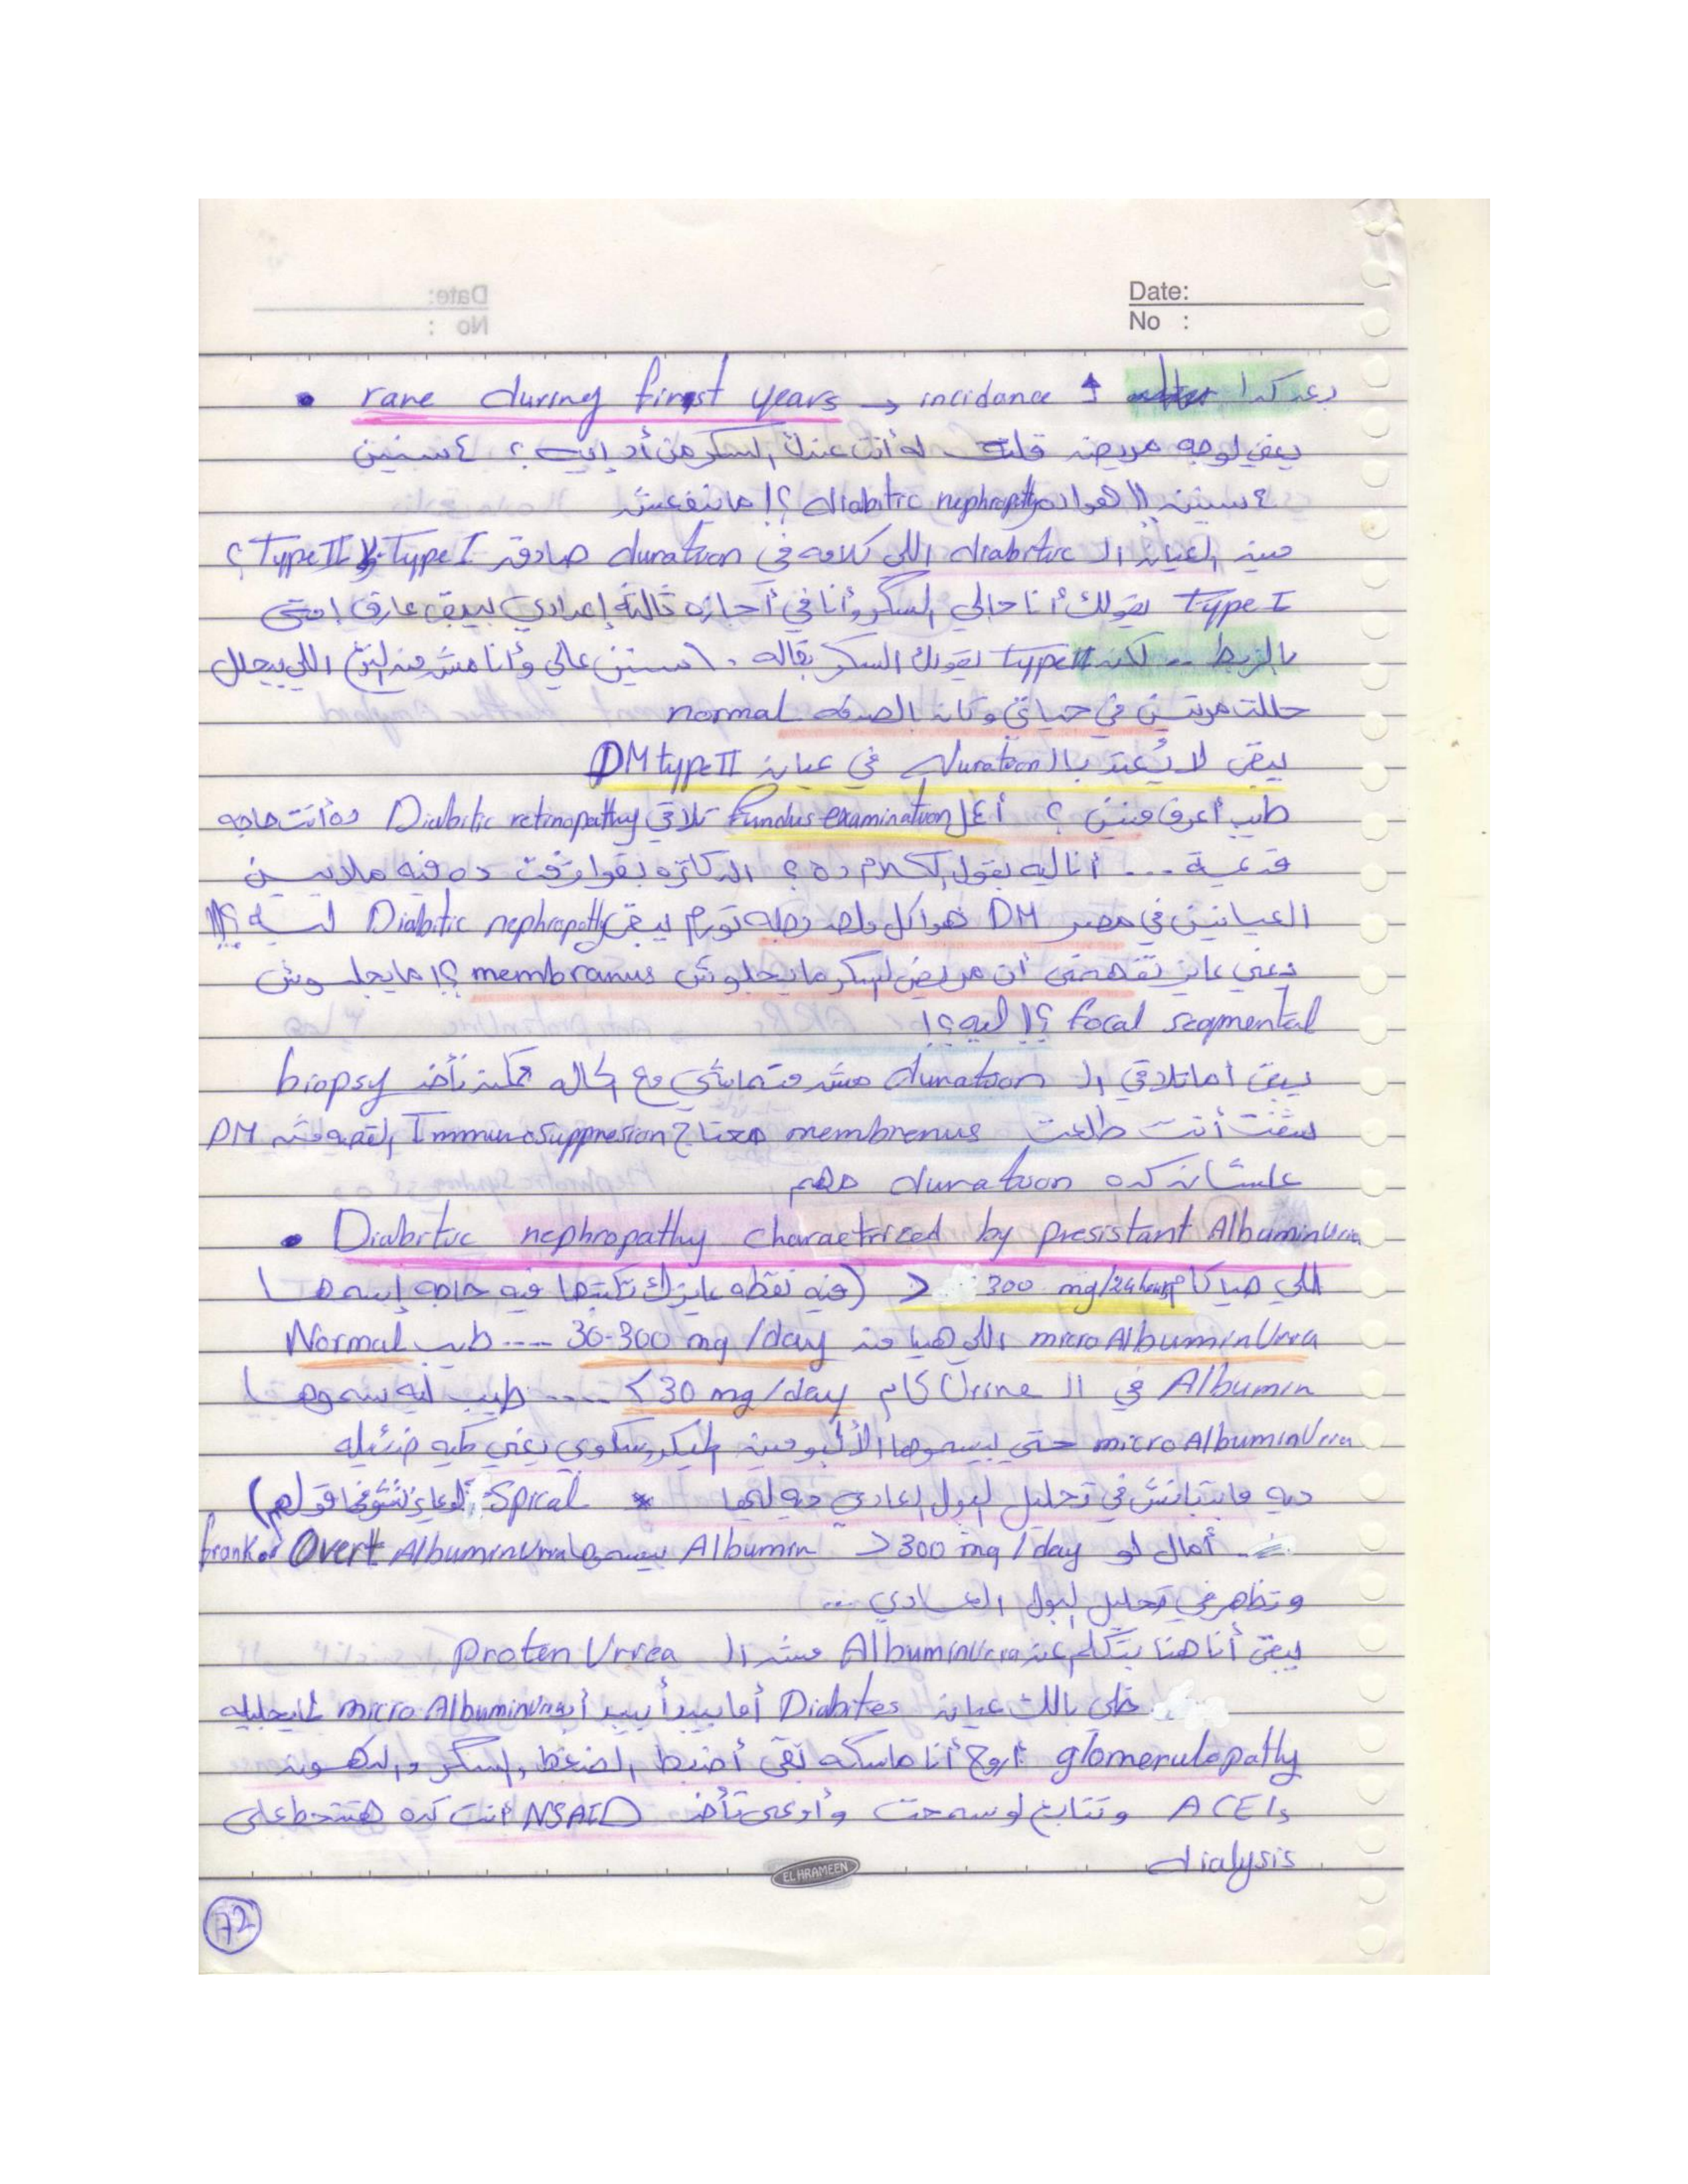 Date:
No :
• rare during first years → incidance ↑ بعد كدا
يعني لو جه مريض قلت له أنت عندك السكر من أد إيه ؟ ٤ سنين
٤ سنين !! هوا ده diabitic nephropthy ؟! ماينفعش
مين العيان الـ diabitic اللي كلامه في duration صادق Type I ولا Type II ؟
Type I يقولك أنا جالي السكر وأنا في أجازه تالته إعدادي بيبقى عارف إمتى
بالزبط .. لكن type II يقولك السكر بقاله ١٠ سنين عالي وأنا مش من النوع اللي بيحلل
حللت مرتين في حياتي وكان بالصدفه normal
يبقى لا يُعتد بالـ duration في عيان DM type II
طيب أعرف منين ؟ أعمل Fundus examination تلاقي Diabitic retinopathy ده أنت حاجه
قديمة ... أنا ليه بقول الكلام ده ؟ الدكاتره بقوا ده فيه ملايين
العيانين في مصر DM هوا كل واحد رجله تورم يبقى Diabitic nephropathy ليه ؟!!
يعني عايز تفهمني أن مريض السكر مايجلوش membranus ؟! مايجلوش
focal segmental ؟! ليه ؟!
يبقى اما تلاقي الـ duration مش متماشي مع الحاله ممكن تأخد biopsy
شفت أنت طلعت membrenus محتاج Immunosuppresion القصه مش DM
علشان كده duration مهم
• Diabitic nephropathy charactrized by presistant AlbuminUria
اللي هيا كام > 300 mg/24 hours (فيه نقطه عايزك تكتبها فيه حاجه إسمها
micro AlbuminUria اللي هيا من 30-300 mg /day .... طيب Normal
Albumin في الـ Urine كام < 30 mg /day .... طيب ليه سموها
micro AlbuminUria حتى بيسموها الألبومين الميكروسكوبي يعني كميه ضئيله
ديه مابتبانش في تحليل البول العادي ديه ليها * Spical لو عايز تشوفها قولهم)
أمال لو Albumin > 300 mg / day بيسموها frank or Overt AlbuminUria
وتظهر في تحليل البول العادي ...
يبقى أنا هنا بتكلم عن AlbuminUria مش الـ Proten Urrea
خلي بالك عيان Diabites أما يبدأ يبدأ بـ micro AlbuminUria لما يجيله
glomerulopathy اروح أنا ماسكه بقى أضبط الضغط والسكر والدهون
ACEIs وتتابع لو سمحت وأوعى تأخد NSAID أنت كده هتتحط على
dialysis
EL HRAMEEN
72